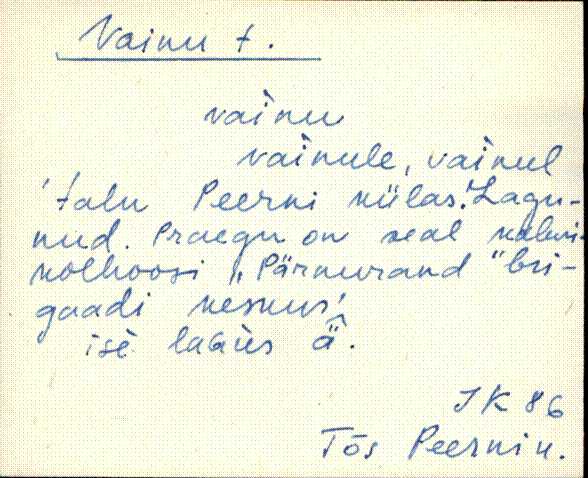 Vainu t.
vàinu
vàinule, vàinul
'talu Peerni külas. Lagu-
nud. Praegu on seal kaluri-
kolhoosi „Pärnurand" bri-
gaadi keskus'
isè laGùs ä̂.
JK 86
Tõs Peerni k.